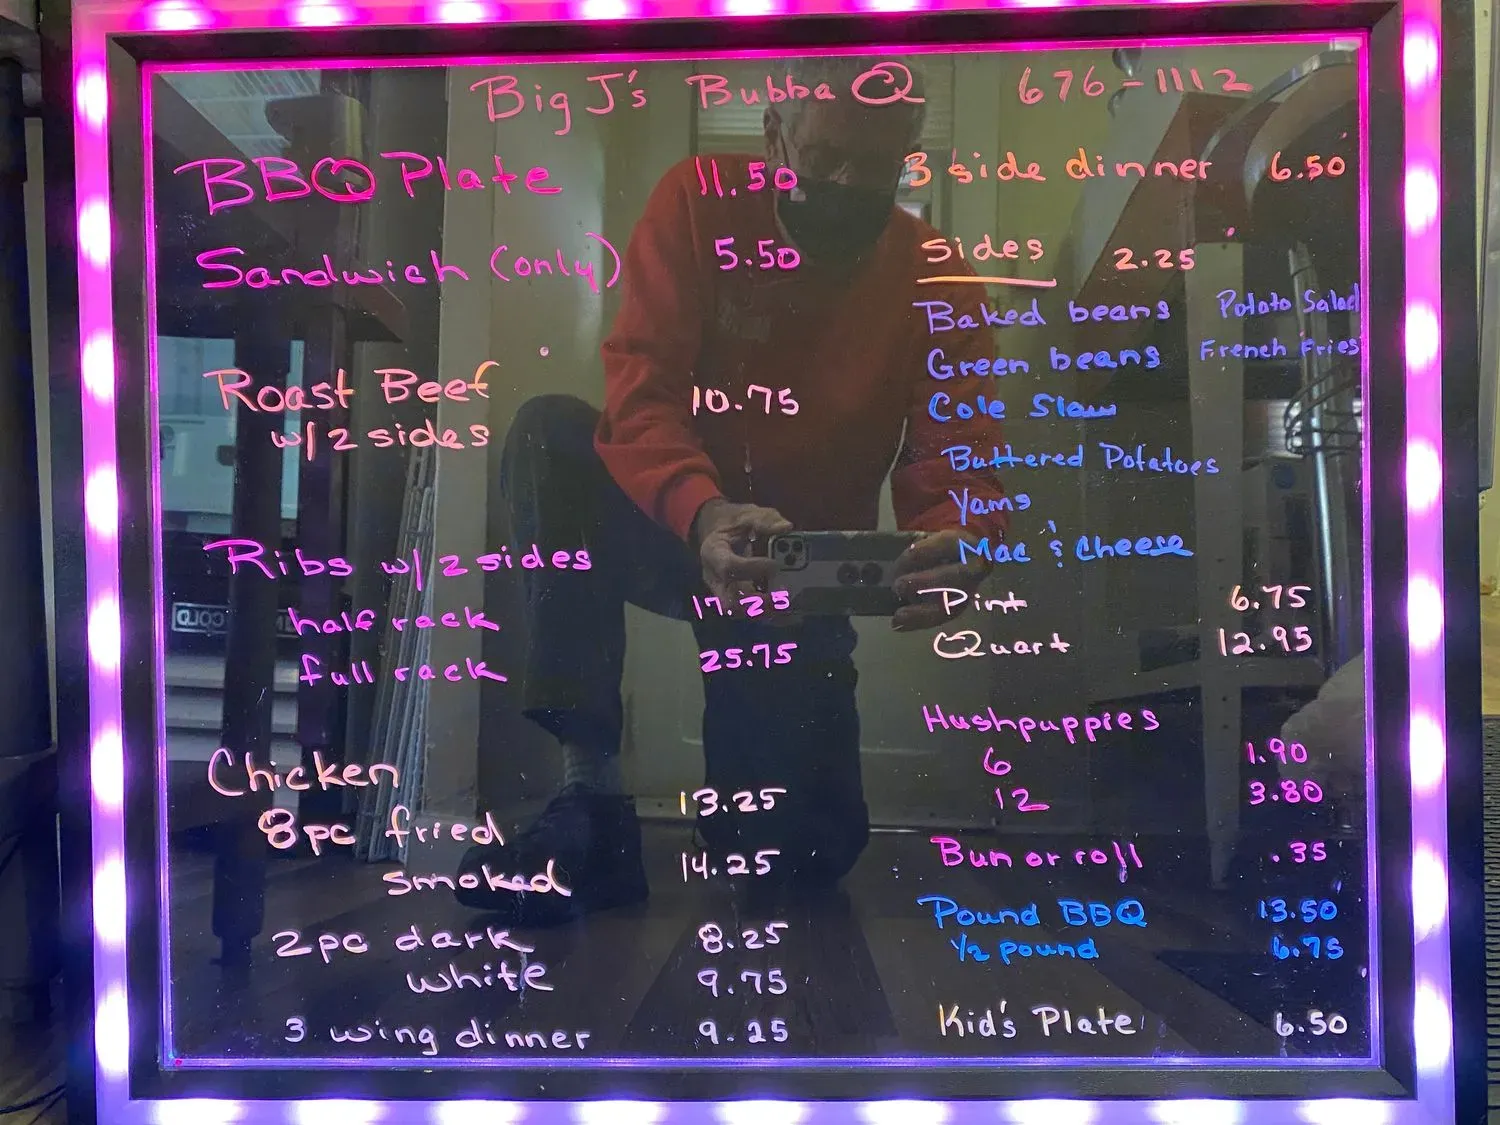 Big J's Bubba Q 676-1112
BBQ Plate 11.50
Sandwich (only) 5.50
Roast Beef 10.75
w/2 sides
Ribs w/2 sides
half rack 17.25
full rack 25.75
Chicken
8pc fried 13.25
smoked 14.25
2pc dark 8.25
white 9.75
3 wing dinner 9.25
3 side dinner 6.50
Sides 2.25
Baked beans Potato Salad
Green beans French Fries
Cole Slaw
Buttered Potatoes
Yams
Mac & Cheese
Pint 6.75
Quart 12.95
Hushpuppies
6 1.90
12 3.80
Bun or roll .35
Pound BBQ 13.50
1/2 pound 6.75
Kid's Plate 6.50